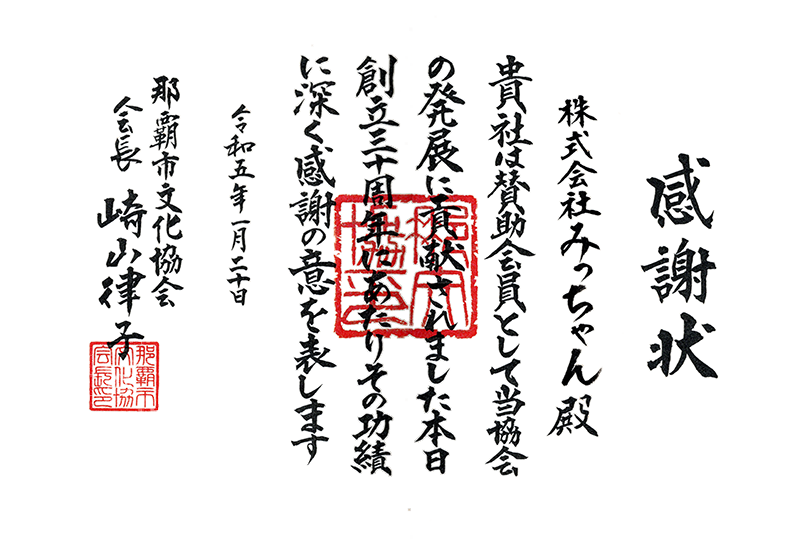 感謝状
株式会社みっちゃん殿
貴社は賛助会員として当協会
の発展に貢献されました本日
創立三十周年にあたりその功績
に深く感謝の意を表します
令和五年一月二十日
那覇市文化協会
会長 崎山律子
那覇市
文化協
会長印